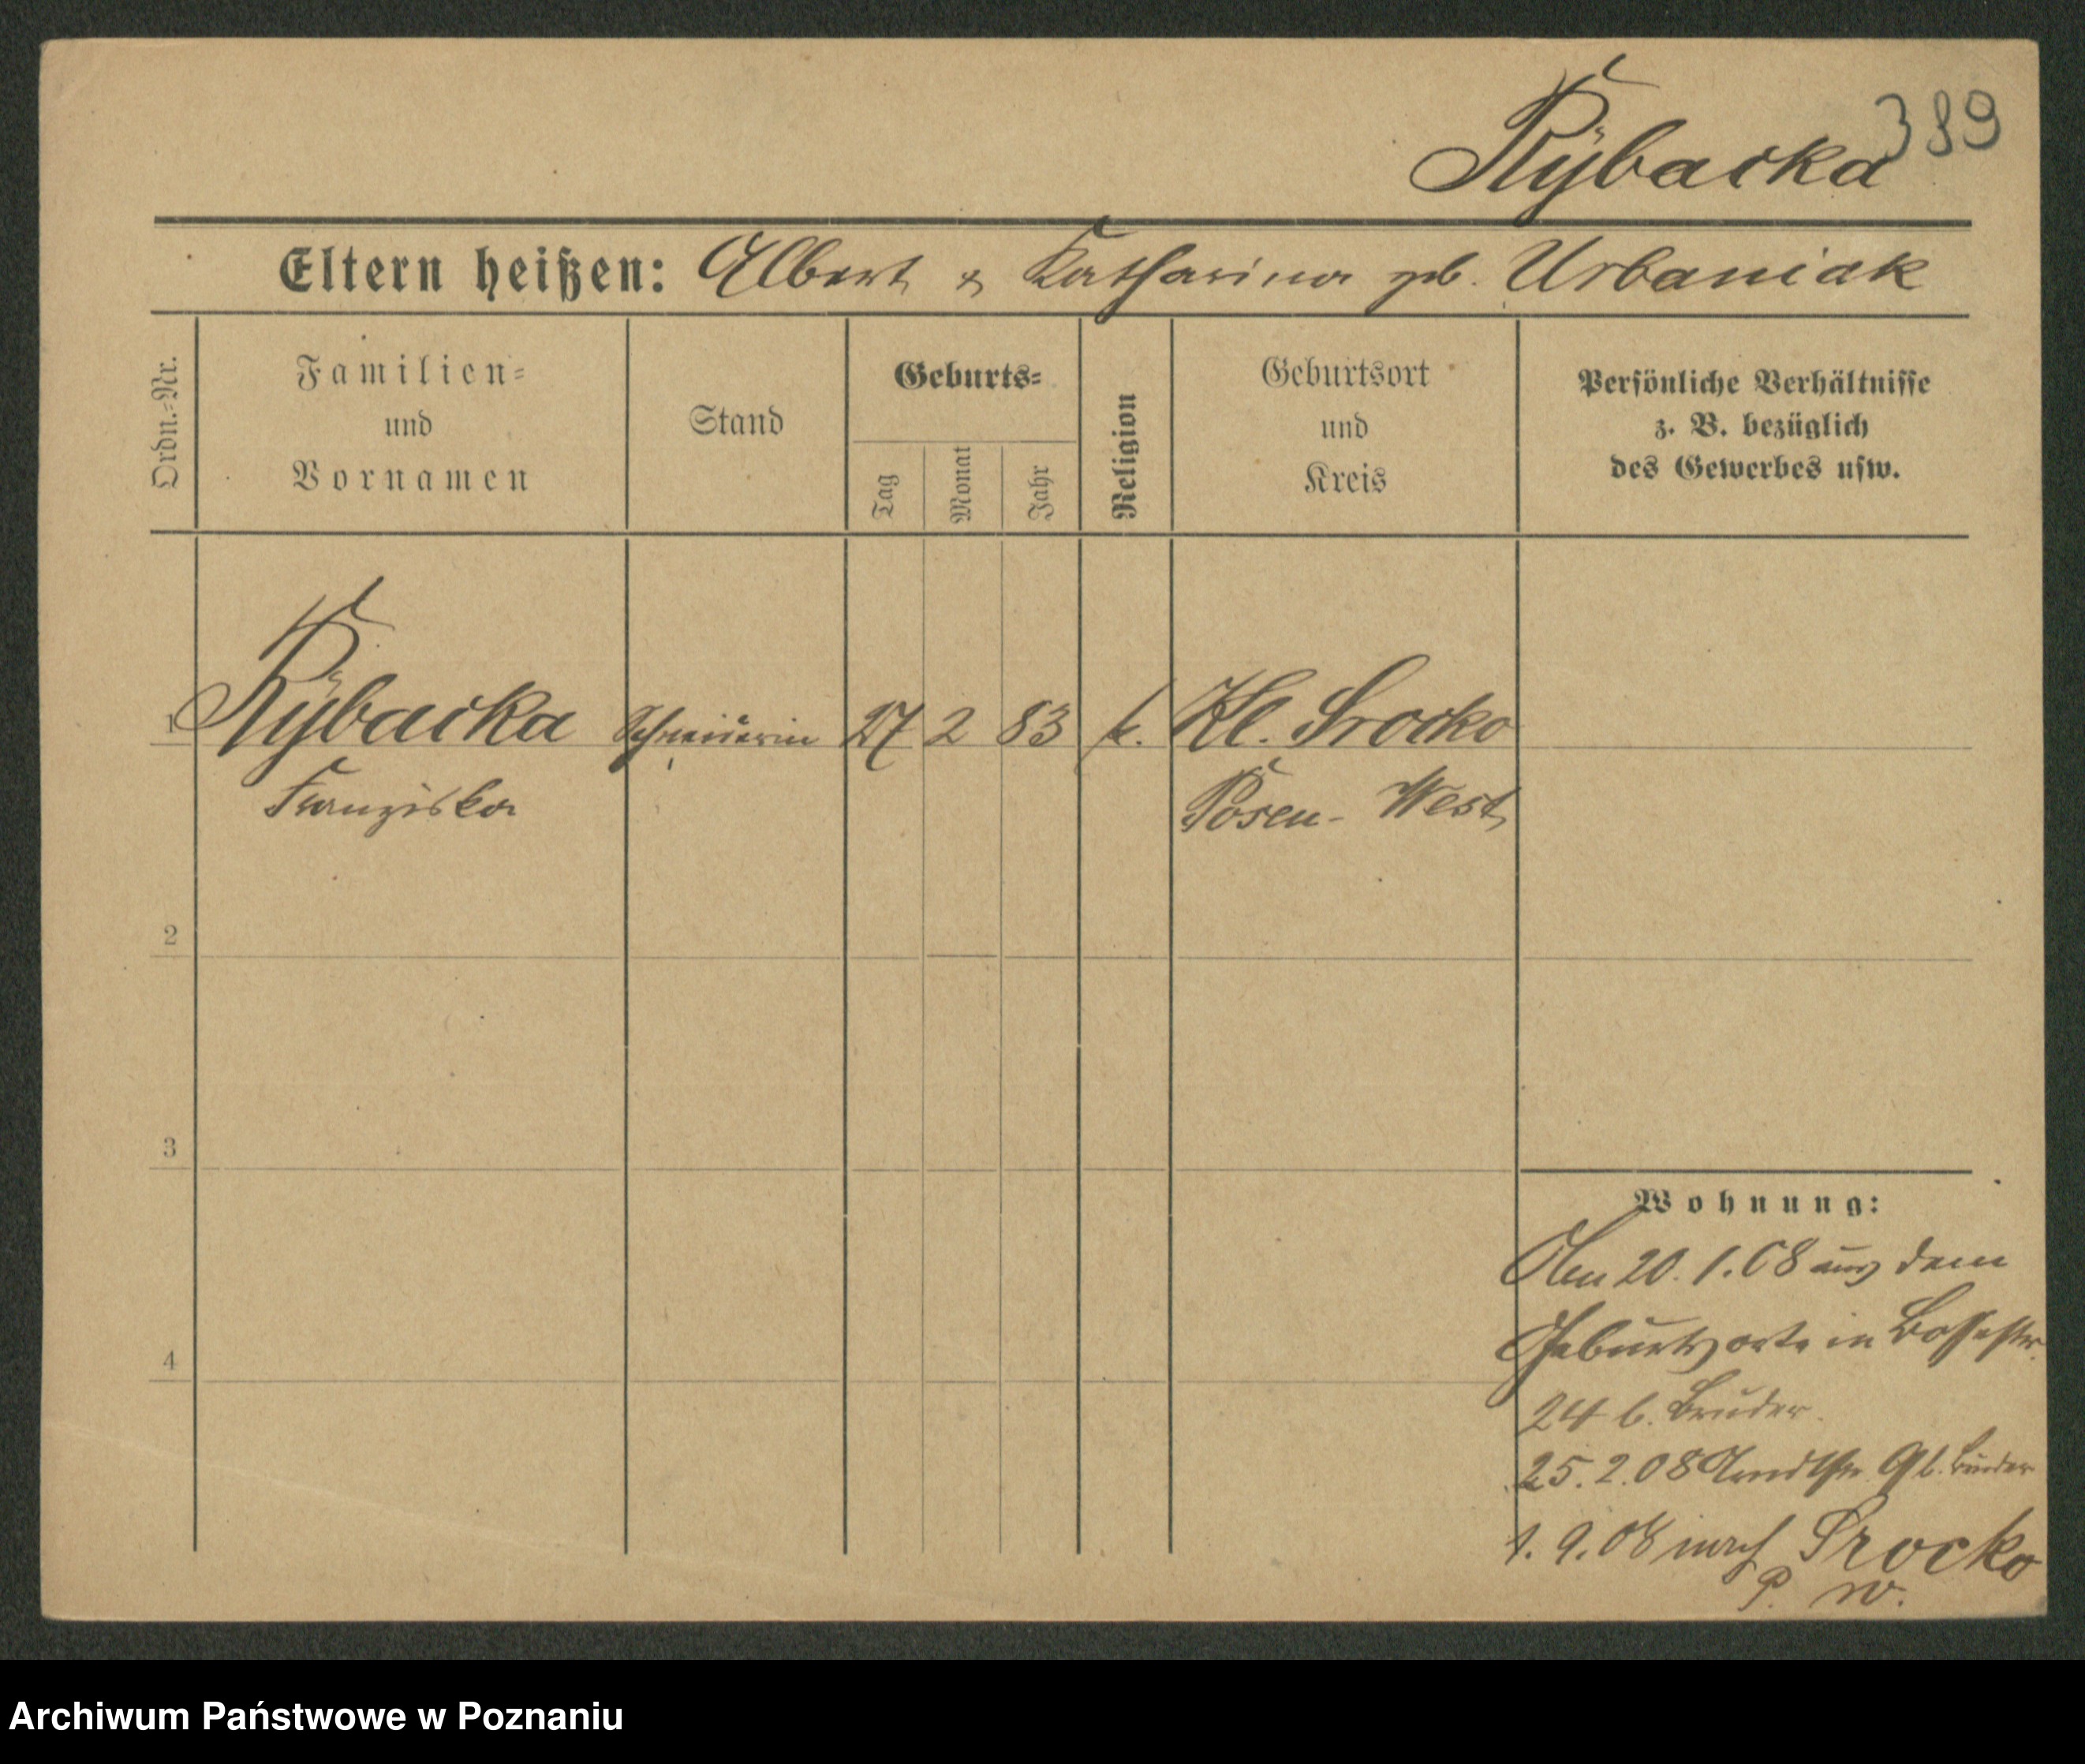 389
Rÿbacka
Eltern heißen: Albert & Katharina geb. Urbaniak
Ordn.-Nr.
Familien-
und
Vornamen
Stand
Geburts-
Tag
Monat
Jahr
Religion
Geburtsort
und
Kreis
Persönliche Verhältnisse
z. B. bezüglich
des Gewerbes usw.
1 Rÿbacka Schneiderin 27 2 83 k. Kl. Srocko
Franziska Posen-West
2
3
4
Wohnung:
Am 20.1.08 aus dem
Geburtsorte in
24 b. Bruder.
25.2.08 Arndtstr. 9 b. Bruder
1.9.08 nach Srocko
P. W.
Archiwum Państwowe w Poznaniu